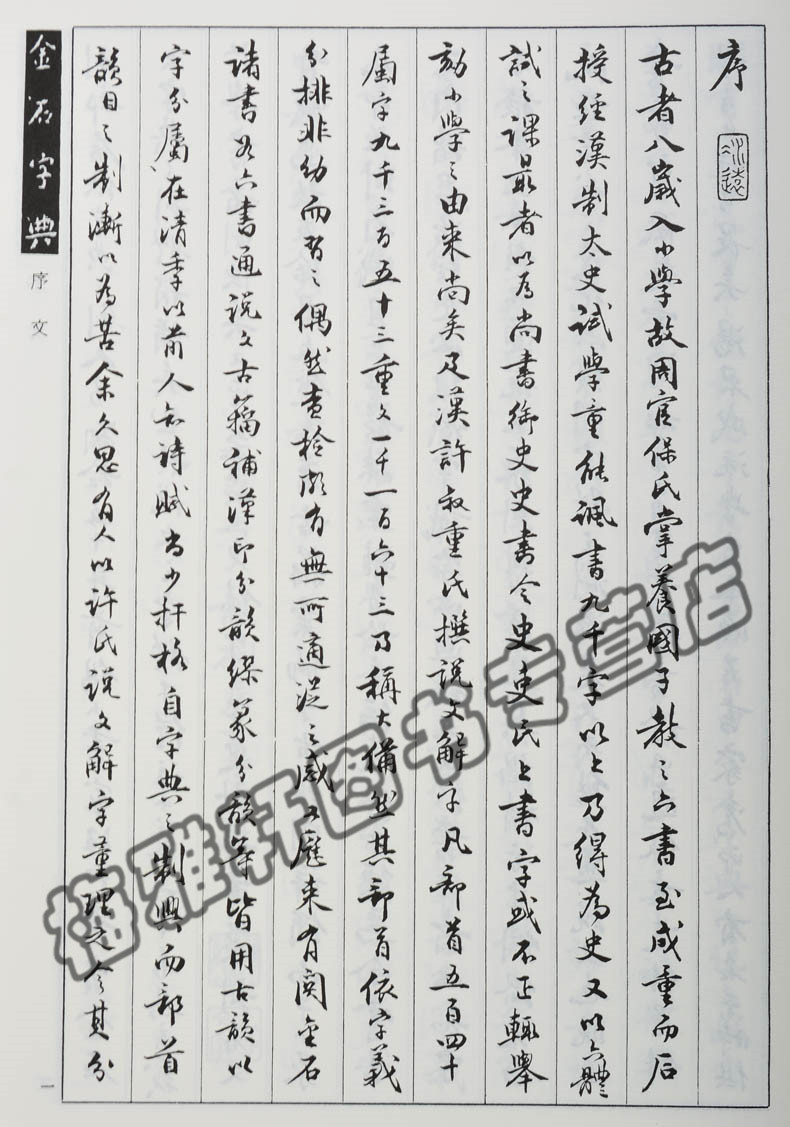 序
古者八歲入小學故周官保氏掌養國子教之六書至成童而后
授經漢制太史試學童能諷書九千字以上乃得為史又以六體
試之課最者以為尚書御史史書令史吏民上書字或不正輒舉
劾小學之由來尚矣及漢許叔重氏撰說文解字凡部首五百四十
屬字九千三百五十三重文一千一百六十三乃稱大備然其部首依字義
分排非幼而習之偶然查檢頗有無所適從之感又歷來有關金石
諸書若六書通說文古籀補漢印分韻繆篆分韻等皆用古韻以
字分屬在清季以前人知詩賦尚少扞格自字典之制興而部首
韻目之制漸以為苦余久思有人以許氏說文解字重理之令其分
金石字典
序文
一
梅雅轩图书专营店